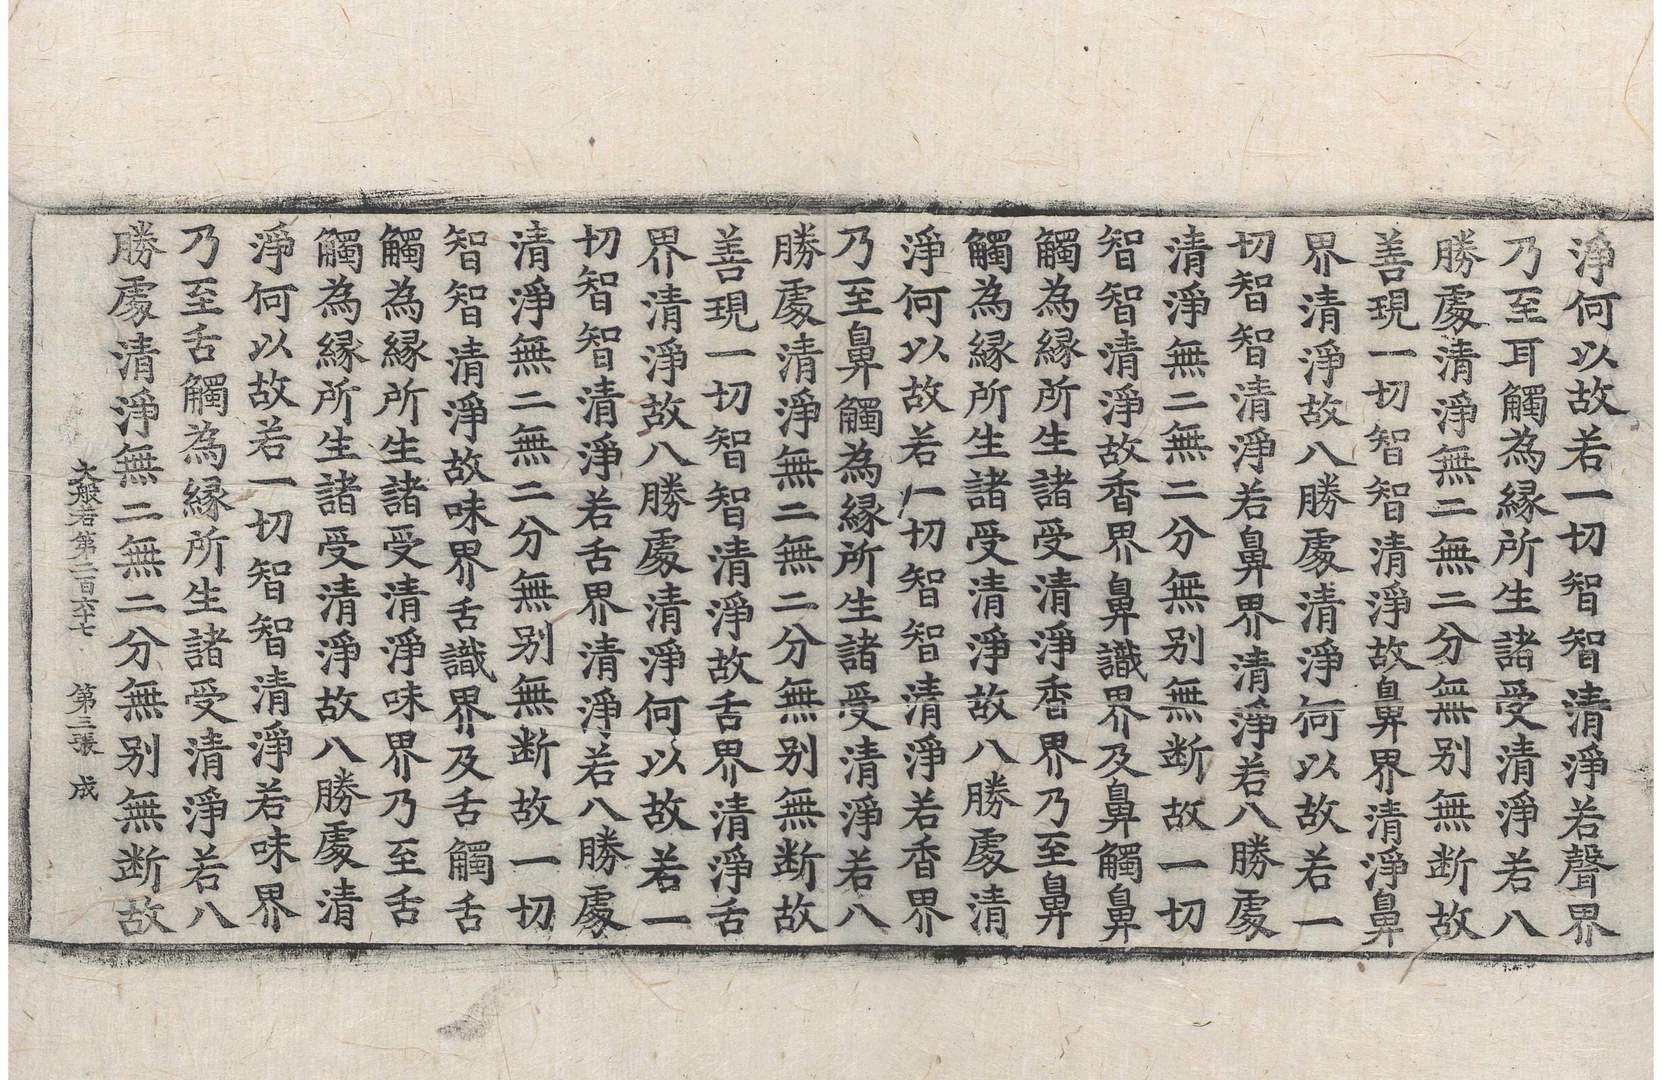 淨何以故若一切智智清淨若聲界
乃至耳觸為緣所生諸受清淨若八
勝處清淨無二無二分無別無断故
善現一切智智清淨故鼻界清淨鼻
界清淨故八勝處清淨何以故若一
切智智清淨若鼻界清淨若八勝處
清淨無二無二分無別無断故一切
智智清淨故香界鼻識界及鼻觸鼻
觸為緣所生諸受清淨香界乃至鼻
觸為緣所生諸受清淨故八勝處清
淨何以故若一切智智清淨若香界
乃至鼻觸為緣所生諸受清淨若八
勝處清淨無二無二分無別無断故
善現一切智智清淨故舌界清淨舌
界清淨故八勝處清淨何以故若一
切智智清淨若舌界清淨若八勝處
清淨無二無二分無別無断故一切
智智清淨故味界舌識界及舌觸舌
觸為緣所生諸受清淨味界乃至舌
觸為緣所生諸受清淨故八勝處清
淨何以故若一切智智清淨若味界
乃至舌觸為緣所生諸受清淨若八
勝處清淨無二無二分無別無断故
大般若第二百六十七 第三張 成